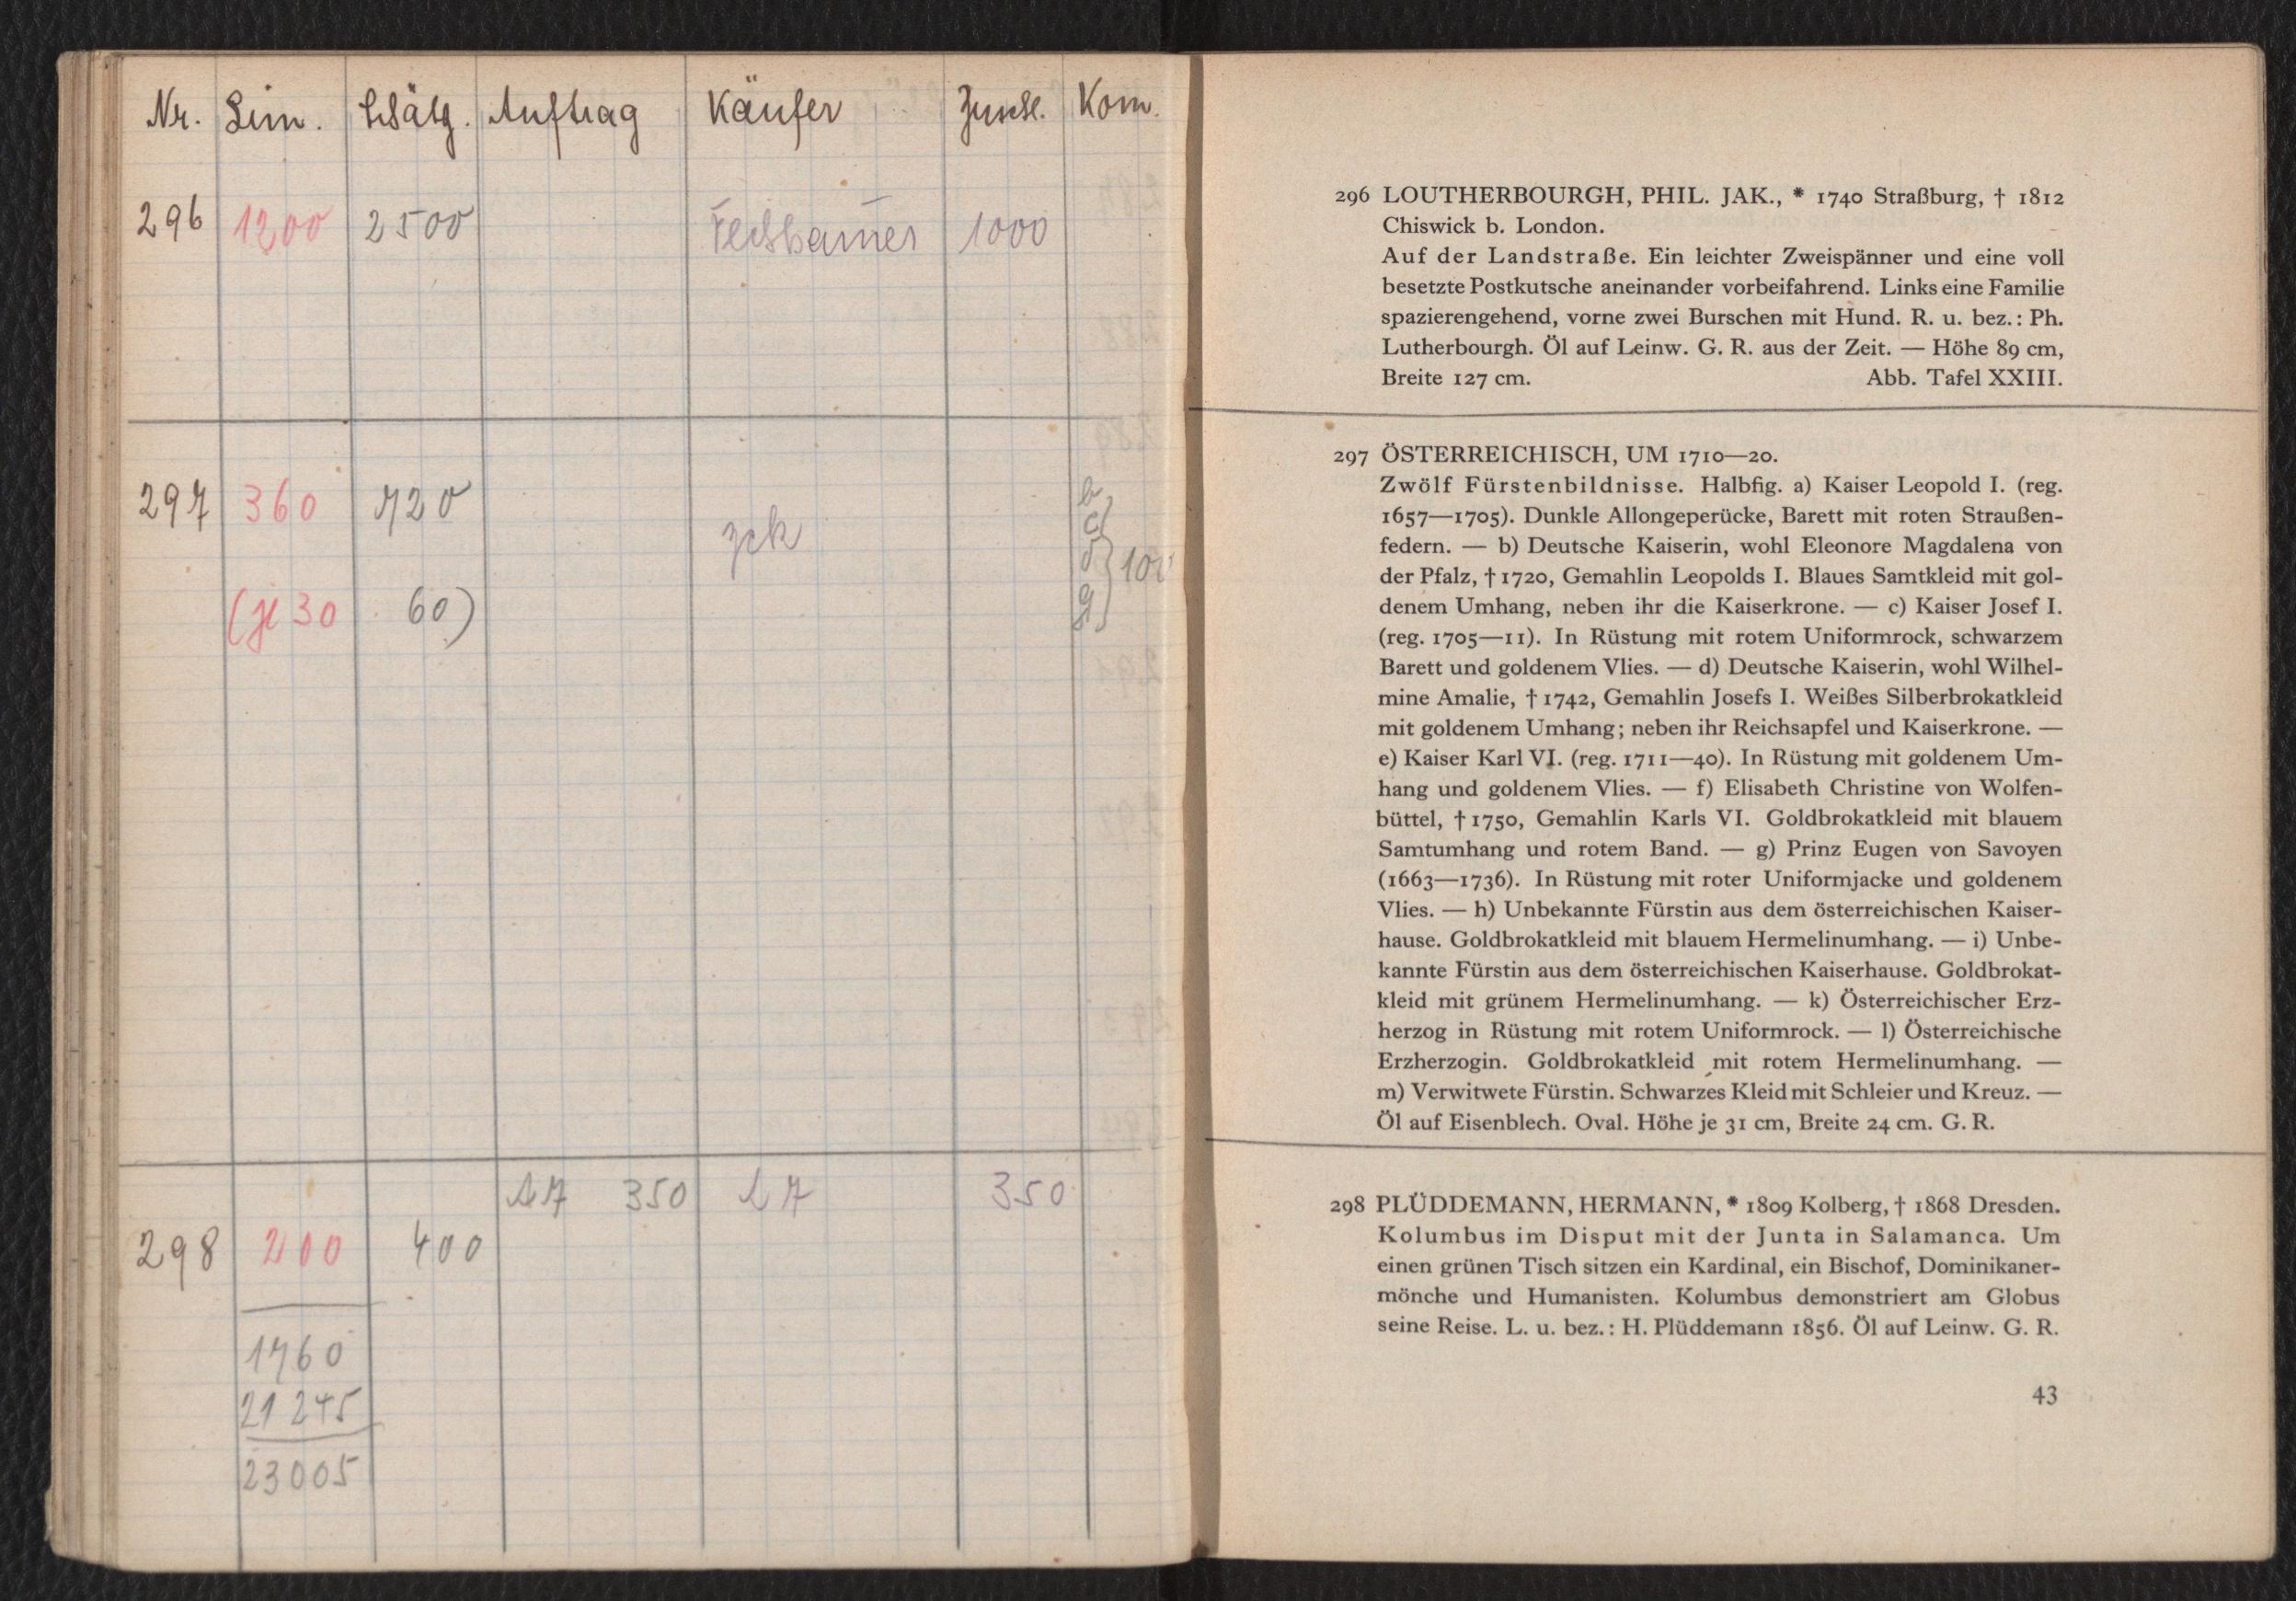 Nr. Lim. Schätzg. Auftrag Käufer Zuschl. Kom.
296 1200 2500 1000
297 360 720 zck
b
c
d 100
g
(je 30 60)
A7 350 A7 350
298 200 400
1760
21245
23005
296 LOUTHERBOURGH, PHIL. JAK., * 1740 Straßburg, † 1812
Chiswick b. London.
Auf der Landstraße. Ein leichter Zweispänner und eine voll
besetzte Postkutsche aneinander vorbeifahrend. Links eine Familie
spazierengehend, vorne zwei Burschen mit Hund. R. u. bez.: Ph.
Lutherbourgh. Öl auf Leinw. G. R. aus der Zeit. — Höhe 89 cm,
Breite 127 cm. Abb. Tafel XXIII.
297 ÖSTERREICHISCH, UM 1710—20.
Zwölf Fürstenbildnisse. Halbfig. a) Kaiser Leopold I. (reg.
1657—1705). Dunkle Allongeperücke, Barett mit roten Straußen-
federn. — b) Deutsche Kaiserin, wohl Eleonore Magdalena von
der Pfalz, † 1720, Gemahlin Leopolds I. Blaues Samtkleid mit gol-
denem Umhang, neben ihr die Kaiserkrone. — c) Kaiser Josef I.
(reg. 1705—11). In Rüstung mit rotem Uniformrock, schwarzem
Barett und goldenem Vlies. — d) Deutsche Kaiserin, wohl Wilhel-
mine Amalie, † 1742, Gemahlin Josefs I. Weißes Silberbrokatkleid
mit goldenem Umhang; neben ihr Reichsapfel und Kaiserkrone. —
e) Kaiser Karl VI. (reg. 1711—40). In Rüstung mit goldenem Um-
hang und goldenem Vlies. — f) Elisabeth Christine von Wolfen-
büttel, † 1750, Gemahlin Karls VI. Goldbrokatkleid mit blauem
Samtumhang und rotem Band. — g) Prinz Eugen von Savoyen
(1663—1736). In Rüstung mit roter Uniformjacke und goldenem
Vlies. — h) Unbekannte Fürstin aus dem österreichischen Kaiser-
hause. Goldbrokatkleid mit blauem Hermelinumhang. — i) Unbe-
kannte Fürstin aus dem österreichischen Kaiserhause. Goldbrokat-
kleid mit grünem Hermelinumhang. — k) Österreichischer Erz-
herzog in Rüstung mit rotem Uniformrock. — l) Österreichische
Erzherzogin. Goldbrokatkleid mit rotem Hermelinumhang. —
m) Verwitwete Fürstin. Schwarzes Kleid mit Schleier und Kreuz. —
Öl auf Eisenblech. Oval. Höhe je 31 cm, Breite 24 cm. G. R.
298 PLÜDDEMANN, HERMANN, * 1809 Kolberg, † 1868 Dresden.
Kolumbus im Disput mit der Junta in Salamanca. Um
einen grünen Tisch sitzen ein Kardinal, ein Bischof, Dominikaner-
mönche und Humanisten. Kolumbus demonstriert am Globus
seine Reise. L. u. bez.: H. Plüddemann 1856. Öl auf Leinw. G. R.
43